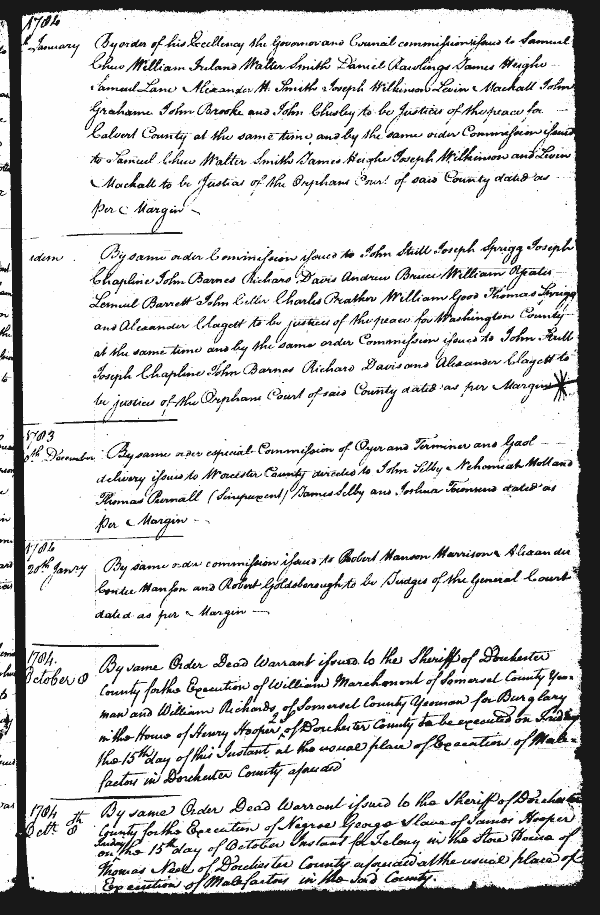 1784
January By order of his Excellency the Governor and Council commission issued to Samuel
Chew William Ireland Walter Smith Daniel Rawlings James Heighe
Samuel Lane Alexander H. Smith Joseph Wilkinson Levin Mackall John
Grahame John Brooke and John Chesley to be Justices of the peace for
Calvert County at the same time and by the same order Commission issued
to Samuel Chew Walter Smith James Heighe Joseph Wilkinson and Levin
Mackall to be Justices of the Orphans Court of said County dated as
per Margin
idem By same order Commission issued to John Stull Joseph Sprigg Joseph
Chapline John Barnes Richard Davis Andrew Bruce William
Lemuel Barrett John Celler Charles Prather William Good Thomas Sprigg
and Alexander Clagett to be justices of the peace for Washington County
at the same time and by the same order Commission issued to John Stull
Joseph Chapline John Barnes Richard Davis and Alexander Clagett to
be justices of the Orphans Court of said County dated as per Margin
1783
December By same order especial Commission of Oyer and Terminer and Gaol
delivery issued to Worcester County directed to John Selby Nehemiah Holland
Thomas Purnall James Selby and Joshua Townsend dated as
per Margin
1784
20th Janry By same order commission issued to Robert Hanson Harrison Alexander
Contee Hanson and Robert Goldsborough to be Judges of the General Court
dated as per Margin
1784.
October 8 By same Order Dead Warrant issued to the Sheriff of Dorchester
County for the Execution of William Marchment of Somerset County Yeo-
man and William Richards of Somerset County Yeoman for Burglary
in the House of Henry Hooper 2d of Dorchester County to be executed on Friday
the 15th day of this Instant at the usual place of Execution of Male-
factors in Dorchester County aforesaid
1784
Octr 8th By same Order Dead Warrant issued to the Sheriff of Dorchester
County for the Execution of Negroe George Slave of James Hooper
Friday
on the 15th day of October Instant for Felony in the Store House of
Thomas Neel of Dorchester County aforesaid at the usual place of
Execution of Malefactors in the said County.